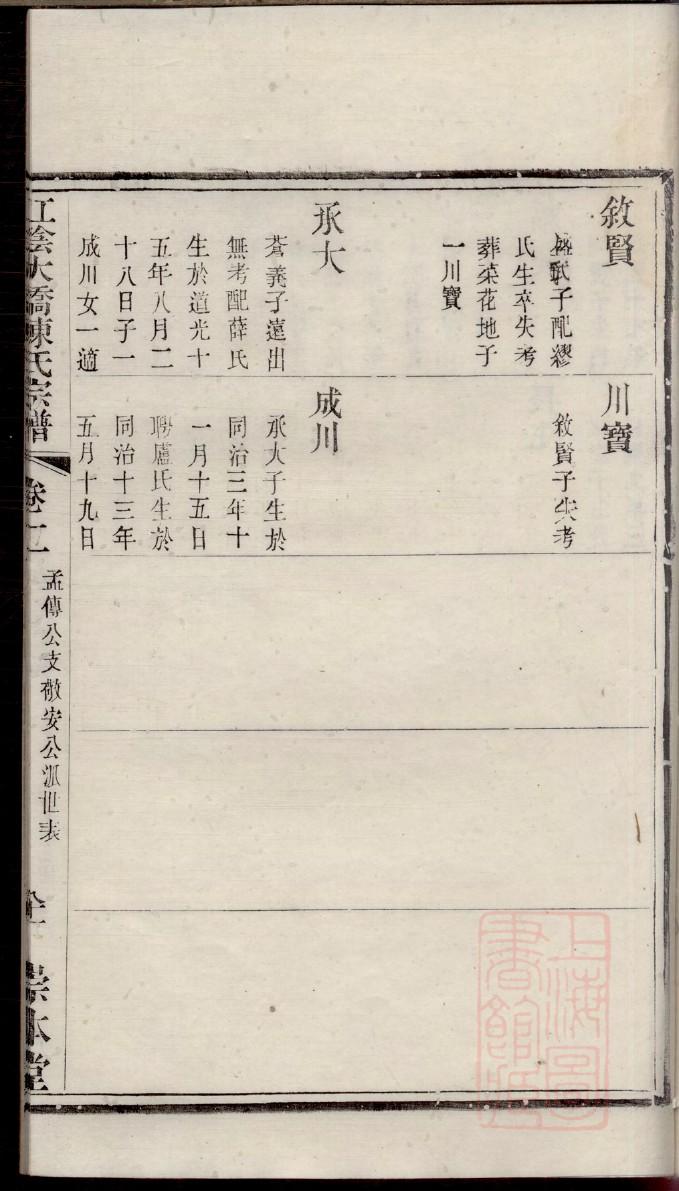 敘賢
子配繆
氏生卒失考
葬菜花地子
一川寶
承大
蒼義子遠出
無考配薛氏
生於道光十
五年八月二
十八日子一
成川女一適
川寶
敘賢子失考
成川
承大子生於
同治三年十
一月十五日
聘盧氏生於
同治十三年
五月十九日
江陰大橋陳氏宗譜
卷十一
孟傳公支敬安公派世表
宗本堂
上海圖書館藏